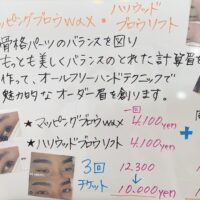 ッピングブロウwax・
ハリウッド
ブロウリフト
骨格パーツのバランスを図り
もっとも美しくバランスのとれた計算眉を
作って、オールフリーハンドテクニックで
魅力的なオーダー眉を創ります。
一回
★マッピングブロウwax 4.100yen
★ハリウッドブロウリフト 4.100yen
+
3回 12,300
チケット → 10.000yen